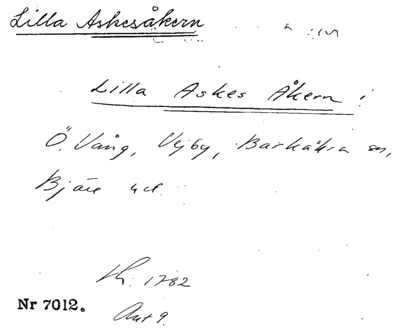 Lilla Askesåkern
Lilla Askes Åkern i
Ö. Vång, Vejby, Barkåkra sn,
Bjäre hd.
1782
Nr 7012. Akt 9.